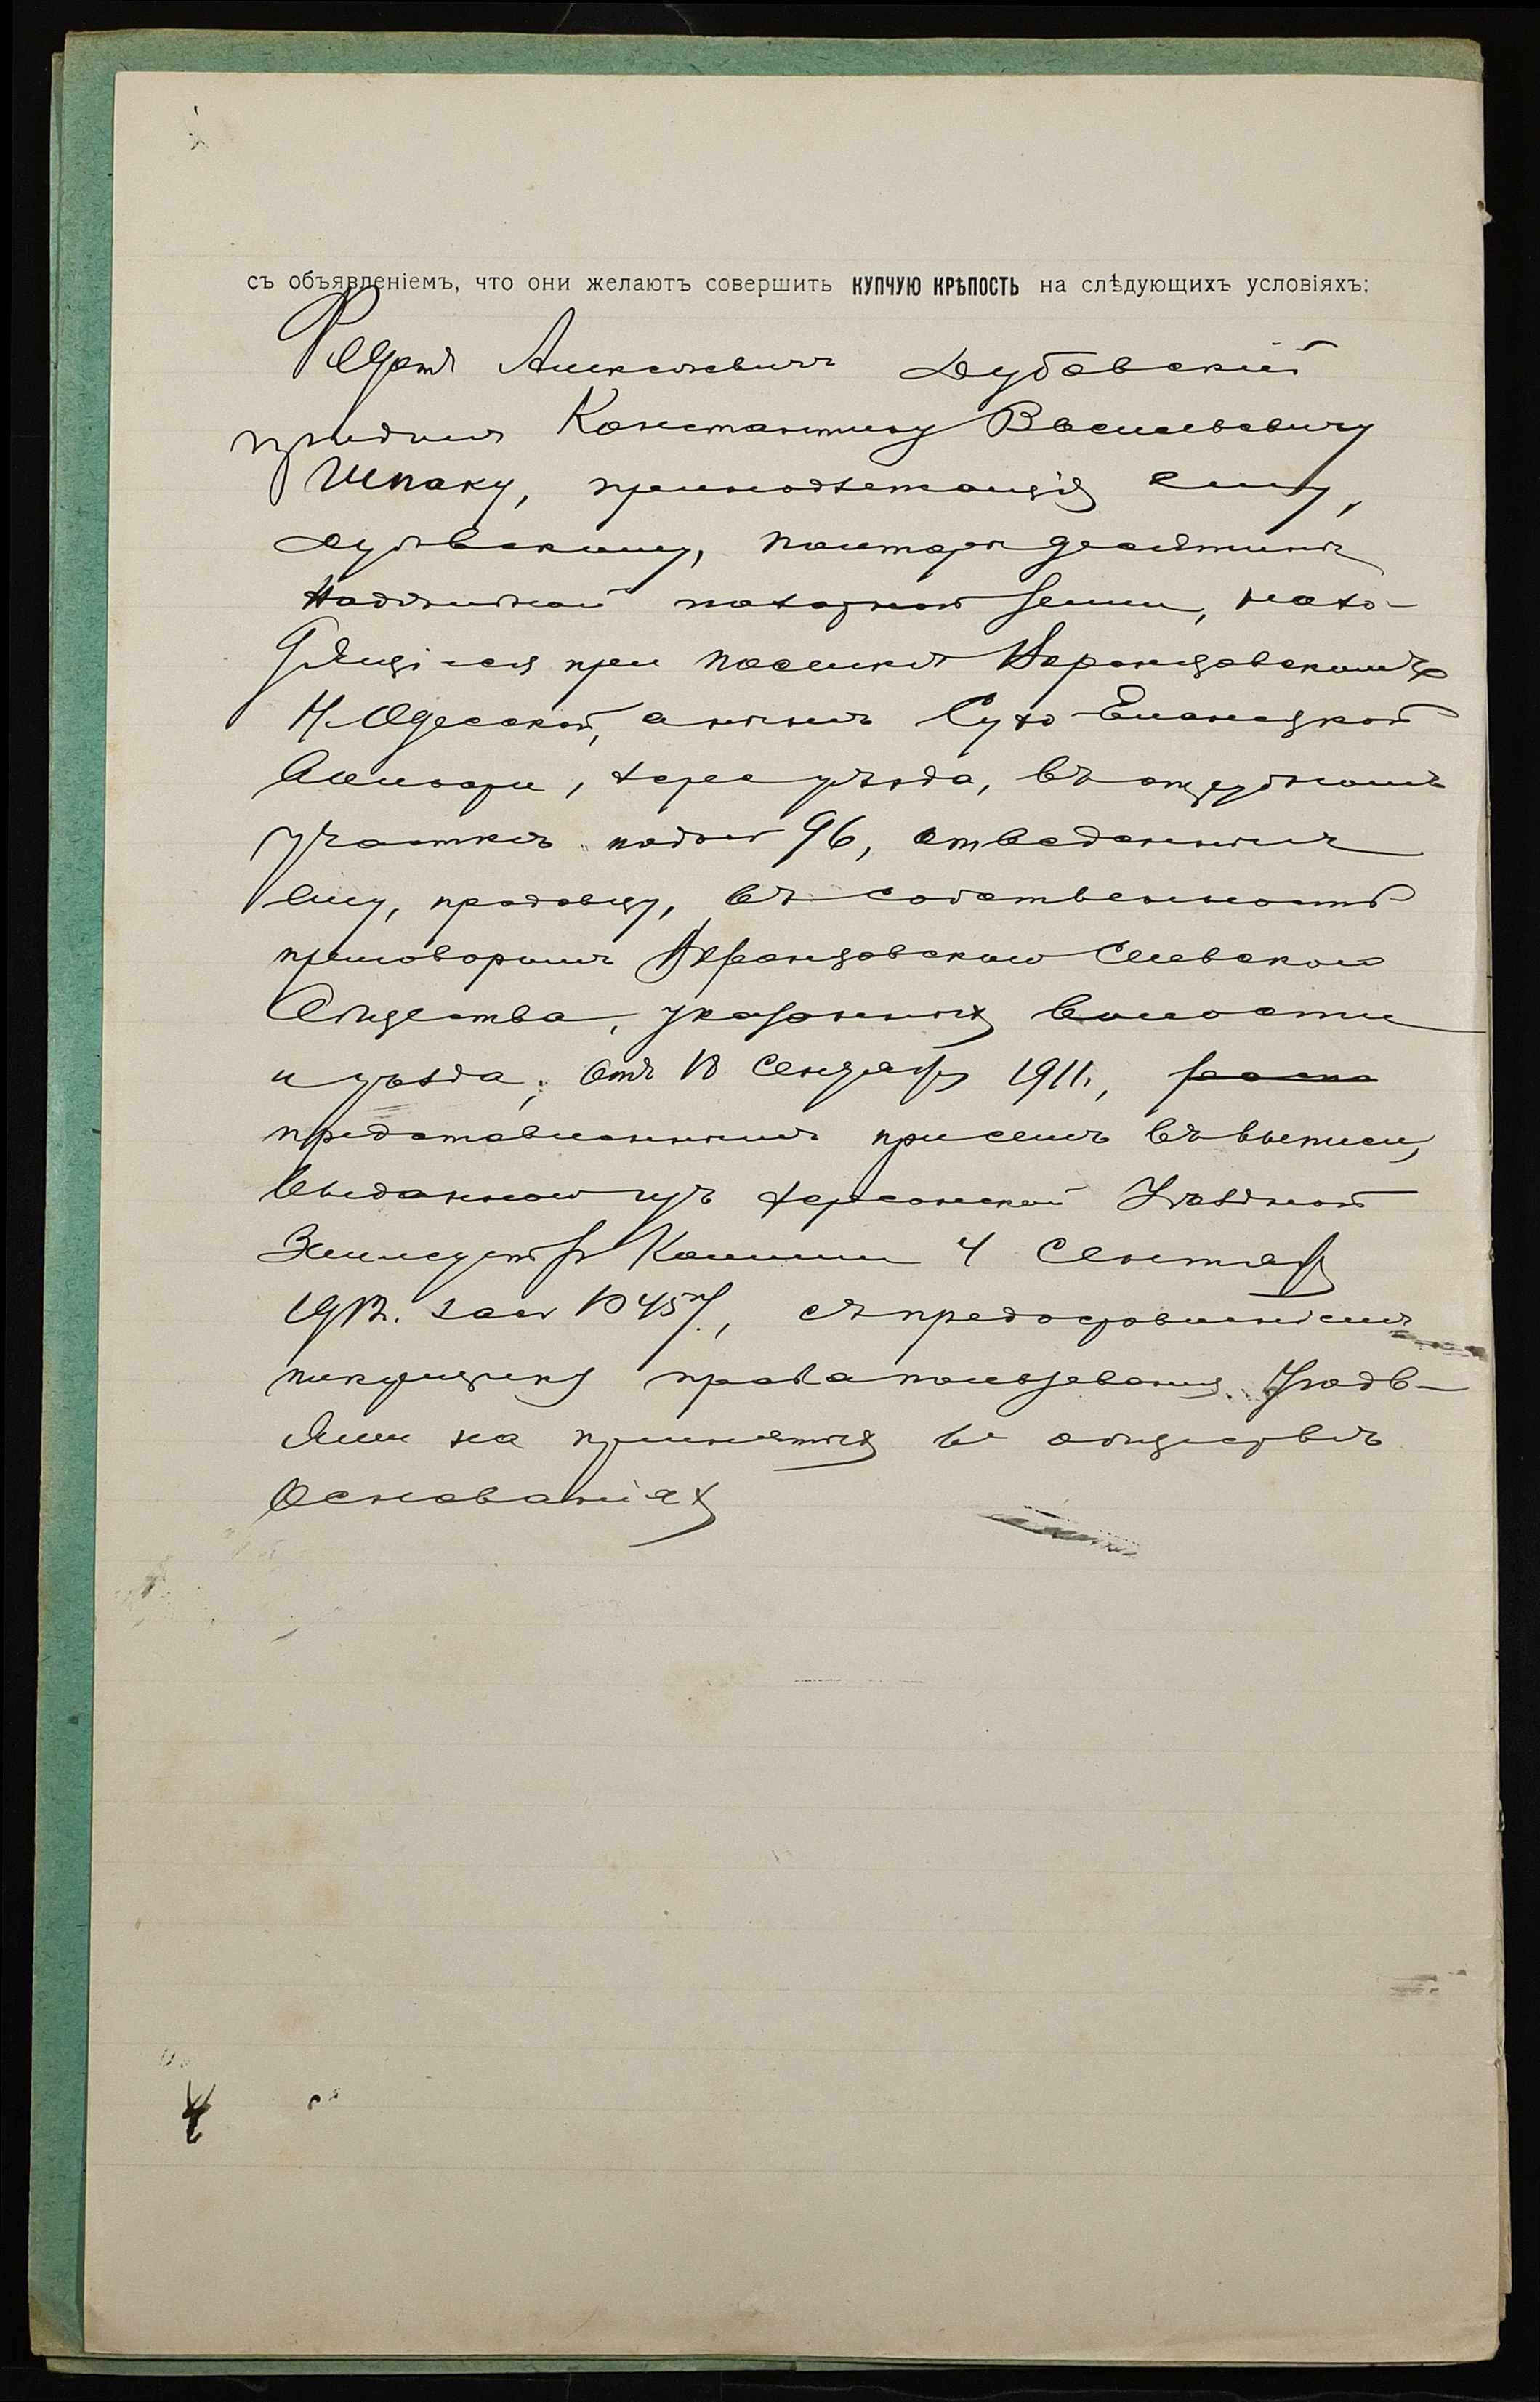 съ объявленіемъ, что они желаютъ совершить КУПЧУЮ КРѢПОСТЬ на слѣдующихъ условіяхъ:
Федотъ Алексѣевичъ Дубовскій
продалъ Константину Васильевичу
Шпаку, принадлежащія ему,
Дубовскому, полторы десятины
надѣльной пахатной земли, нахо-
дящіяся при поселкѣ
Н. Одесской, а нынѣ Сухо-Еланецкой
волости, Херс уѣзда, въ отрубномъ
участкѣ подъ № 96, отведенныя
ему, продавцу, въ собственность
приговоромъ Сельскаго
Общества, указанныхъ волости
и уѣзда, отъ 18 Сентября 1911,
представленнымъ при семъ въ выписи,
выданной изъ Херсонской Уѣздной
Землеустр Комиссіи 4 Сентября
за № 457, съ предоставленіемъ
покупщику права пользованія
на принятыхъ въ обществѣ
основаніяхъ